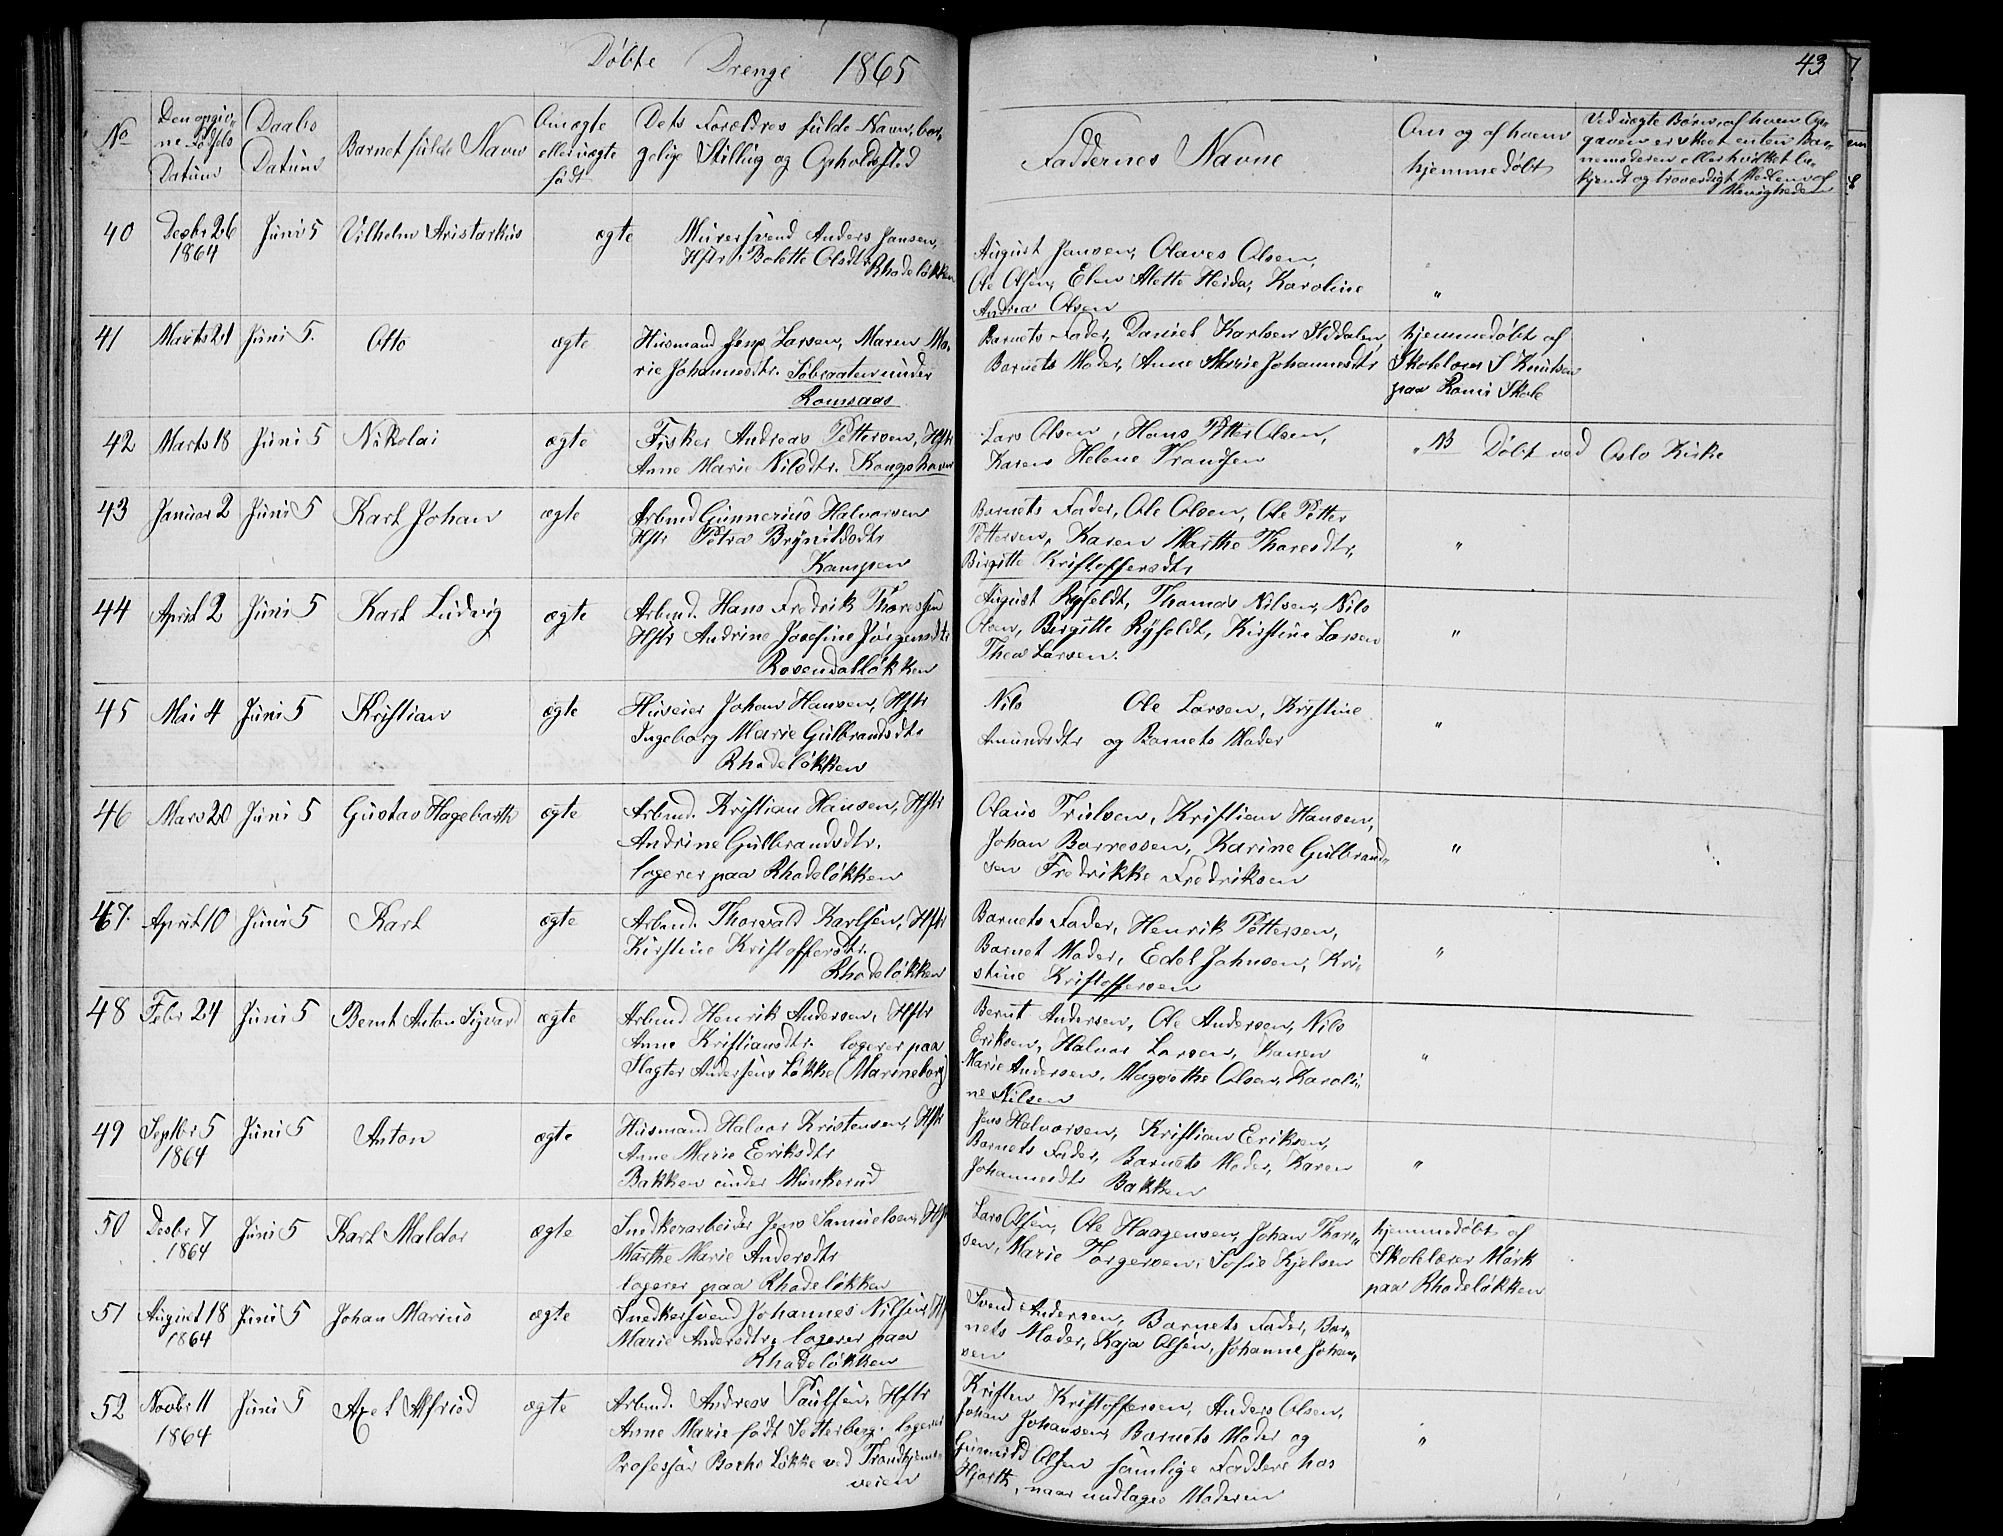 Døbte Drenge 1865
43
No
Den opgiv-
ne Fødsels
Datum
Daabs
Datum
Barnet fulde Navn
Om ægte
eller uægte
født
Dets Forældres fulde Navn, bor-
gelige Stilling og Opholdssted
Faddernes Navne
Om og af hvem
hjemmedøbt
Ved uægte Børn, af hvem Op-
gaven er skeet enten Bar-
nemoderen eller hvilket be-
kjendt og troværdigt Medlem af
Menigheden
40 Desbr 26 Juni 5 Vilhelm Aristarkus ægte Murersvend Anders Jansen,
1864 Hstr Bolette Olsdtr
Rhodeløkken
August Jansen, Olaves Olsen,
Ole Olsen, Elen Alette Heida, Karoline
Andrea Olsen "
41 Marts 21 Juni 5. Otto ægte Husmand Jens Larsen, Maren Ma-
rie Johannesdtr. Søbraaten under
Romsaas
Barnets Fader, Daniel Karlsen Skiddalen,
Barnets Moder, Anne Marie Johannesdtr
hjemmedøbt af
Skolelærer S Knutsen
paa Roms Skole
42 Marts 18 Juni 5 Nikolai ægte Fisker Andreas Pettersen, Hstr
Anne Marie Nilsdtr. Kongshavn
Lars Olsen, Hans Petter Olsen,
Karen Helene Frantsen
" NB Døbt ved Oslo Kirke
43 Januar 2 Juni 5 Karl Johan ægte Arbmd Gunnerius Halvorsen
Hstr Petra Brynildsdtr
Kampen
Barnets Fader, Ole Olsen, Ole Petter
Pettersen, Karen Marthe Thoresdtr,
Birgitte Kristoffersdtr "
44 April 2 Juni 5 Karl Ludvig ægte Arbmd. Hans Fredrik Thoresen
Hstr Andrine Josefine Jørgensdtr
Rosendalløkken
August Ryfeldt, Thomas Nilsen, Nils
Olsen, Birgitte Ryfeldt, Kirstine Larsen
Thea Larsen. "
45 Mai 4 Juni 5 Kristian ægte Huseier Johan Hansen, Hstr
Ingeborg Marie Gulbrandsdtr
Rhodeløkken
Nils Ole Larsen, Kristine
Amundsdtr og Barnets Moder "
46 Mars 20 Juni 5 Gustav Hagebarth ægte Arbmd. Kristian Hansen, Hstr
Andrine Gulbrandsdtr.
logerer paa Rhodeløkken
Olaus Trulsen, Kristian Hansen,
Johan Borresen, Karine Gulbrand-
sen Fredrikke Fredriksen "
47. April 10 Juni 5 Karl ægte Arbmd. Thorvald Karlsen, Hstr
Kirstine Kristoffersdtr.
Rhodeløkken
Barnets Fader, Henrik Pettersen,
Barnet Moder, Edel Johnsen, Kri-
stine Kristoffersen "
48 Febr 24 Juni 5 Bernt Anton Sigvard ægte Arbmd Henrik Andersen, Hstr
Anne Kristiansdtr. logerer paa
Slagter Andersens Løkke (Marineborg)
Bernt Andersen, Ole Andersen, Nils
Eriksen, Halvor Larsen, Karen
Marie Andersen, Magrethe Olsen, Karoli-
ne Nilsen "
49 Septbr 5 Juni 5 Anton ægte Husmand Halvor Kristensen, Hstr
1864 Anne Marie Eriksdtr
Bakken under Munkerud
Jens Halvorsen, Kristian Eriksen,
Barnets Fader, Barnets Moder, Karen
Johannesdtr Bakken "
50 Desbr 7 Juni 5 Karl Maldor ægte Snedkerarbeider Jens Samuelsen, Hstr
1864 Marthe Marie Andersdtr
logerer paa Rhodeløkken
Lars Olsen, Ole Haagensen, Johan Thor-
sen, Marie Torgersen, Sofie Kjelsen
hjemmedøbt af
Skolelærer Mørk
paa Rhodeløkken
51 August 18 Juni 5 Johan Marius ægte Snedkersvend Johannes Nilsen, Hst
1864 Marie Andersdtr. logerer paa
Rhodeløkken
Svend Andersen, Barnets Fader, Bar-
nets Moder, Kaja Olsen, Johanne Johan-
sen
52 Novbr 11 Juni 5 Axel Alfred ægte Arbmd. Andreas Paulsen, Hstr
1864 Anne Marie født Setterberg. logerer
Professor Bochs Løkke ved Trondhjems-
veien
Kristen Kristoffersen, Anders Olsen,
Johan Johansen, Barnets Moder og
Gunnild Olsen samlige Faddere hos
Hjorth, naar undtages Moderen "